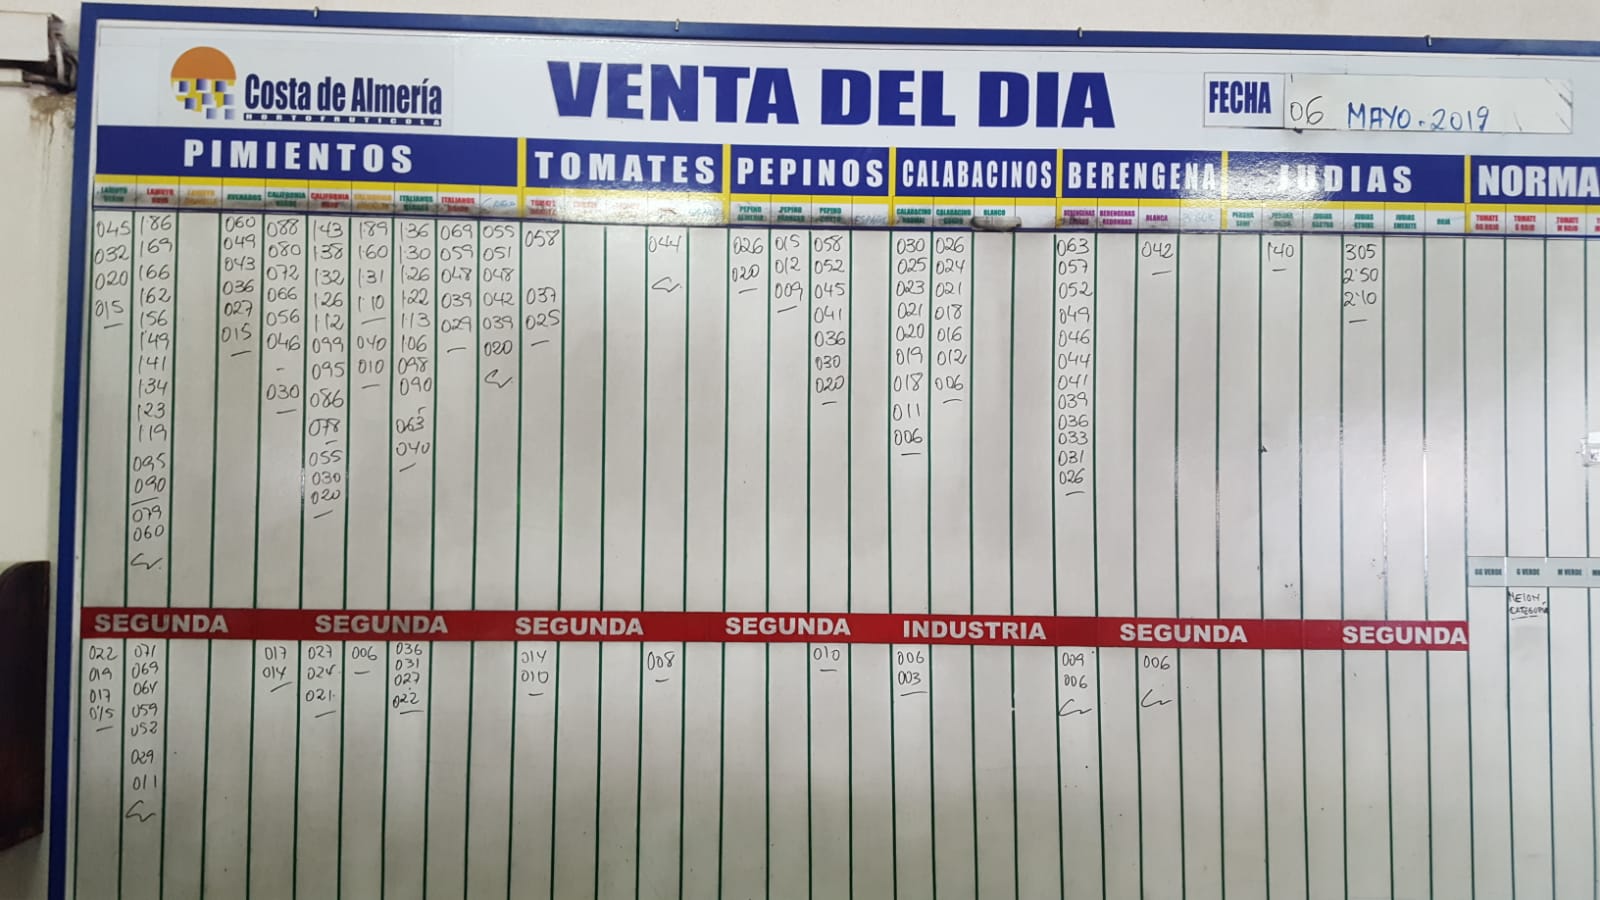 Costa de Almería
HORTOFRUTICOLA
VENTA DEL DIA
FECHA 06 MAYO-2019
PIMIENTOS TOMATES PEPINOS CALABACINOS BERENGENA JUDIAS NORMA
LAMUYO LAMUYO CALIFORNIA CALIFORNIA ITALIANOS ITALIANOS PEPINO ALMERIA PEPINO PEPINO CORTO CALABACINO CALABACINO GORDO BLANCO BERENGENAS BERENGENAS REDONDAS BLANCA PERONA SEMI PERONA JUDIAS JUDIAS STRIKE JUDIAS EMERITE ROJA TOMATE GG ROJO TOMATE G ROJO TOMATE M ROJO
045
032
020
015
186
169
166
162
156
149
141
134
123
119
095
090
079
060
060
049
043
036
027
015
088
080
072
066
056
046
030
143
138
132
126
112
099
095
086
078
055
030
020
189
160
131
110
040
010
136
130
126
122
113
106
098
090
063
040
069
059
048
039
029
055
051
048
042
039
020
058
037
025
044
026
020
015
012
009
058
052
045
041
036
030
020
030
025
023
021
020
019
018
011
006
026
024
021
018
016
012
006
063
057
052
049
046
044
041
039
036
033
031
026
042
140
305
2'50
2'10
GG VERDE G VERDE M VERDE
MELON
CATEGORIA
SEGUNDA SEGUNDA SEGUNDA SEGUNDA INDUSTRIA SEGUNDA SEGUNDA
022
019
017
015
071
069
064
059
052
029
011
017
014
027
024
021
006
036
031
027
022
014
010
008
010
006
003
009
006
006